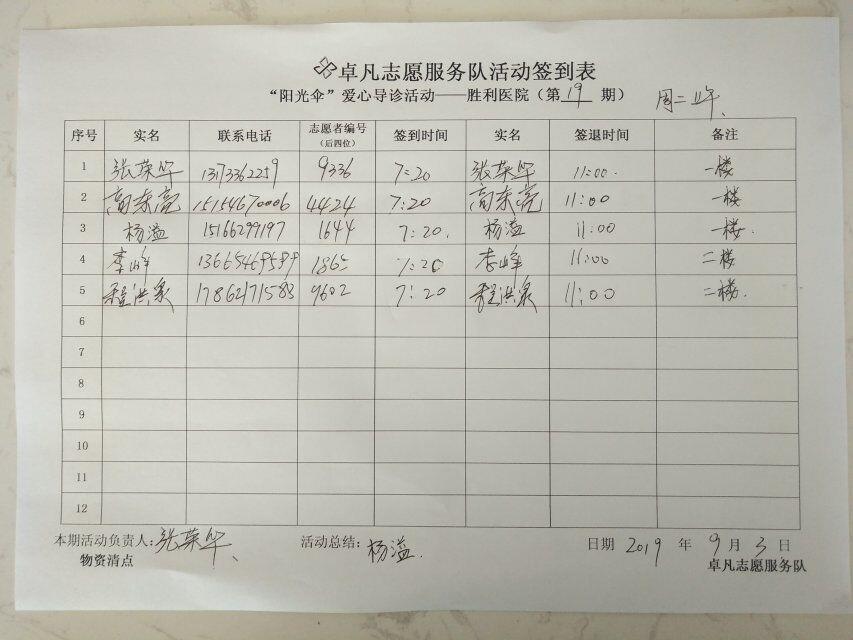 卓凡志愿服务队活动签到表
“阳光伞”爱心导诊活动——胜利医院（第19期） 周二上午、
序号 实名 联系电话 志愿者编号（后四位） 签到时间 实名 签退时间 备注
1 张荣华 13173362259 9336 7:20 张荣华 11:00. 一楼
2 高东亮 15154670006 4424 7:20 高东亮 11:00 一楼
3 杨溢 15166299197 1644 7:20. 杨溢 11:00 一楼.
4 李峰 1865 7:20 李峰 11:00 二楼
5 程洪泉 17862171583 9602 7:20 程洪泉 11:00 二楼.
6
7
8
9
10
11
12
本期活动负责人:张荣华、 活动总结: 杨溢. 日期 2019 年 9月 3日
物资清点 卓凡志愿服务队